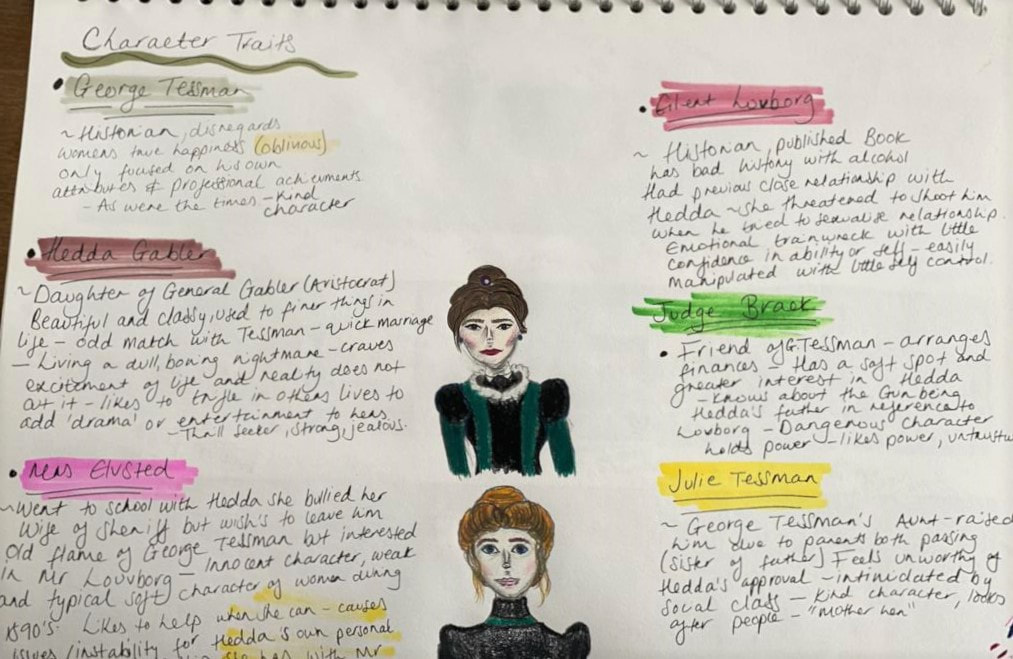 Character Traits
George Tessman
~ Historian, disregards
womens true happiness (oblivious)
only focused on his own
attributes & professional acheivments
- As were the times - Kind
character
Hedda Gabler
~ Daughter of General Gabler (Aristocrat)
Beautiful and classy, used to finer things in
life - odd match with Tessman - quick marriage
- Living a dull, boring nightmare - craves
excitement of life and reality does not
cut it - likes to trifle in others lives to
add 'drama' or entertainment to hers
- Thrill seeker, strong, jealous.
Mrs Elvsted
~ Went to school with Hedda she bullied her
Wife of Sheriff but wish's to leave him
Old flame of George Tessman but interested
in Mr Louvborg - Innocent character, weak
and typical soft character of women during
1890's. Likes to help when she can - causes
issues / instability for Hedda's own personal
she has with Mr
Eilent Lovborg
~ Historian, published Book
has bad history with alcohol
Had previous close relationship with
Hedda ~ she threatened to shoot him
when he tried to sexualise relationship.
Emotional trainwreck with little
confidence in ability or self - easily
manipulated with little self control.
Judge Brack
Friend of G.Tessman - arranges
finances - Has a soft spot and
greater interest in Hedda
- Knows about the Gun being
Hedda's father in reference to
Lovborg - Dangerous character
holds power - likes power,
Julie Tessman
~ George Tessman's Aunt - raised
him due to parents both passing
(sister of father) Feels unworthy of
Hedda's approval - intimidated by
social class - Kind character, looks
after people - "mother hen"